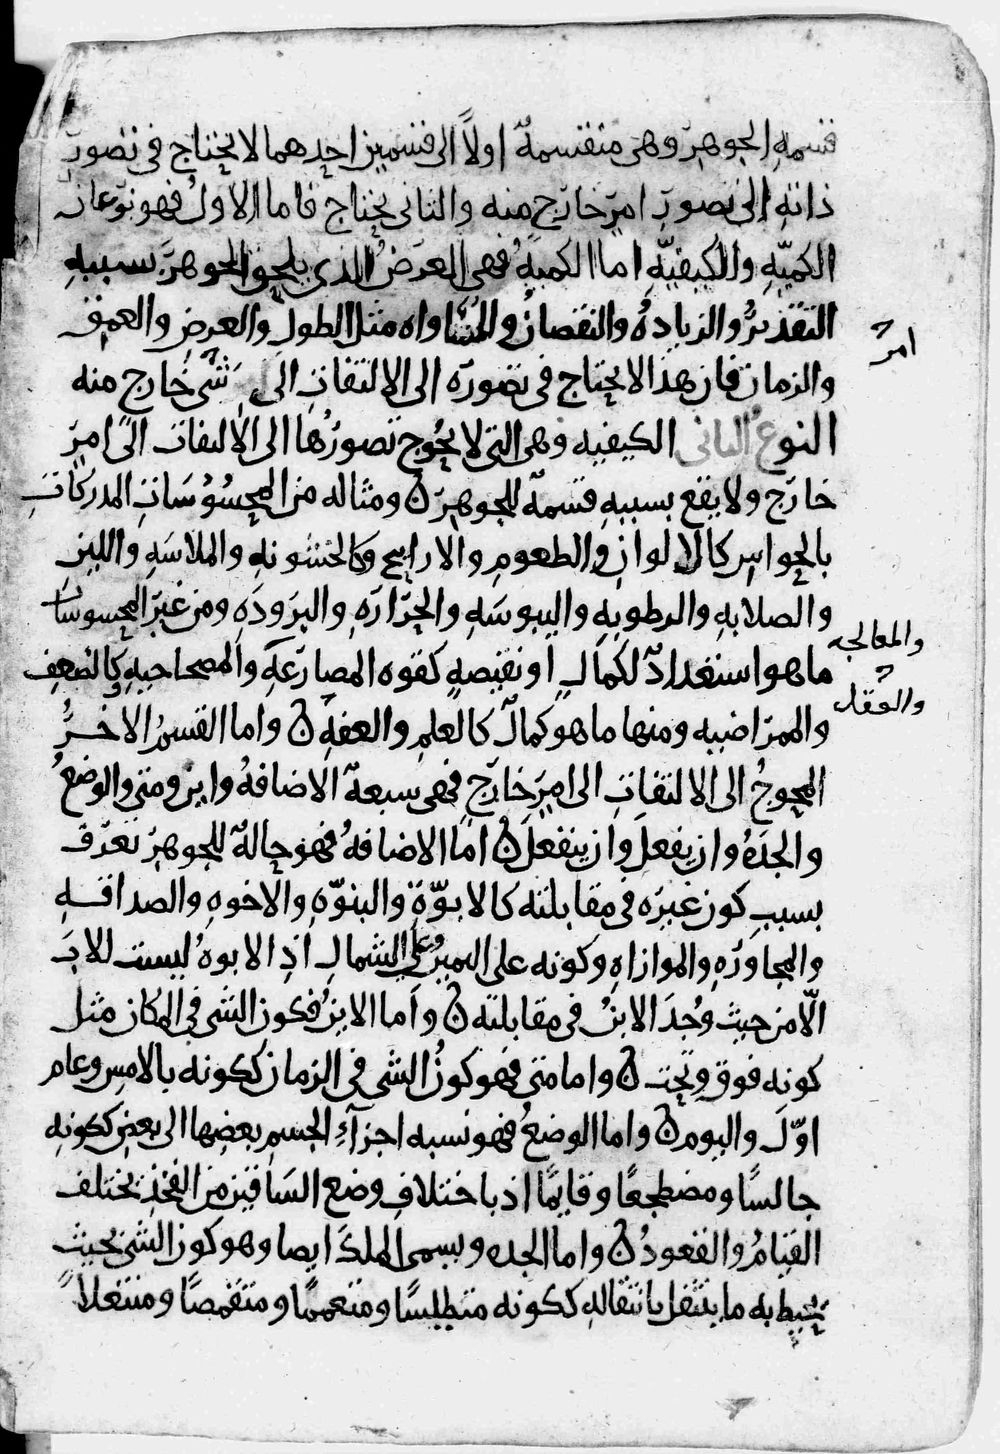 قسمه الجوهر وهى منقسمةٌ اولاً الى قسمين احدهما لا يحتاج فى تصور
ذاته الى تصور امر خارج منه والثانى يحتاج فاما الاولُ فهو نوعان
الكميّه والكيفيّه اما الكميةُ فهى العرضُ الذى يلحق الجوهرَ بسببه
التقديرُ والزيادهُ والنقصانُ والمساواه مثل الطول والعرض والعمق
والزمان فان هذا لا يحتاج فى تصوره الى الالتفات الى شىً خارج منه
النوع الثانى الكيفيه وهى التى لا يحُوج تصورُها الى الالتفات الى امرٍ
خارج ولا يقع بسببهِ قسمةٌ للجوهر ن ومثاله من المحسُوسَات المدركات
بالحواس كالالوان والطعوم والاراييح وكالخشونه والملاسَه واللين
والصلابه والرطوبه واليبوسَه والحرارَه والبرودَه ومن غير المحسوسات
ما هو استعدادٌ لكمالٍ او نقيصهٍ كقوه المصارعَه والمصحاحيه كالضعف
والممراضيه ومنها ما هو كمالٌ كالعلم والعفه ن واما القسمُ الاخرُ
المحوجُ الى الالتفات الى امرٍ خارج فهى سبعةٌ الاضافهُ واين ومتى والوضعُ
والجدَهُ وان يفعلَ وان ينفعلَ ن اما الاضافهُ فهو حالةٌ للجوهر تعرّف
بسبب كون غيرَه فى مقابلته كالابوّةِ والبنوّهِ والاخوه والصداقه
والمجاورَه والموازاهِ وكونه على اليمين وعلى الشمال اذ الابوهُ ليست للاب
الّا من حيث وُجدَ الابنُ فى مقابلته ن واما الاينُ فكون الشى فى المكان مثل
كونه فوق وتحت ن واما متى فهو كونُ الشى فى الزمان ككونه بالامس وعام
اوّلَ واليوم ن واما الوضعُ فهو نسبه اجزآءِ الجسم بعضِها الى بعض ككونِه
جالسًا ومضطجعًا وقايمًا اذ باختلاف وضع السَاقين من الفخذ يختلف
القيامُ والقعودُ ن واما الجده ويسمى الملكَ ايضا وهو كون الشى بحيث
يحيط به ما ينتقل بانتقاله ككونه متطلسًا ومتعممًا ومتقمصًا ومتنعلاً
امر
والمعالجه
والعقل